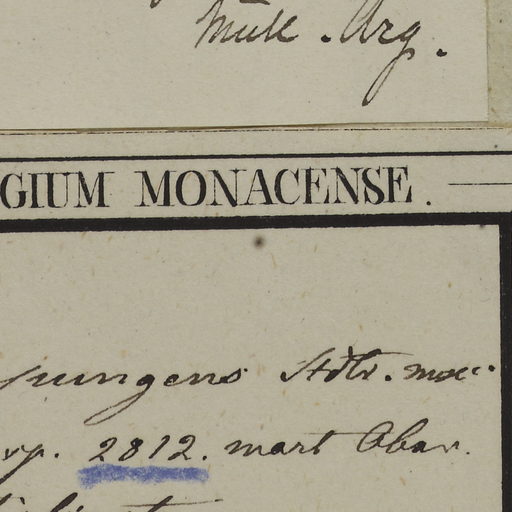 Müll. Arg.
GIUM MONACENSE.
pungens Stdlr. msc.
2812. mart Obar.